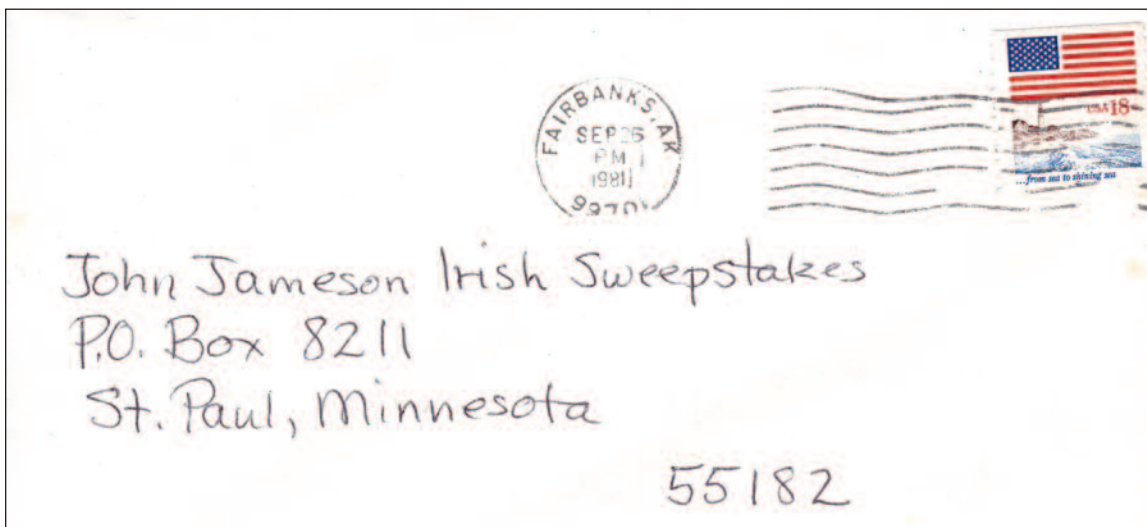 FAIRBANKS, AK
SEP 26
PM
1981
9970
USA 18
...from sea to shining sea
John Jameson Irish Sweepstakes
P.O. Box 8211
St. Paul, Minnesota
55182